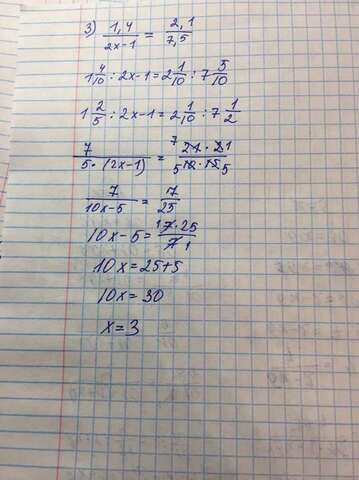 3) 1,4/(2x-1) = 2,1/7,5
1 4/10 : 2x-1 = 2 1/10 : 7 5/10
1 2/5 : 2x-1 = 2 1/10 : 7 1/2
7/(5·(2x-1)) = 7 21·21/(5 10·15 5)
7/(10x-5) = 7/25
10x-5 = 1 7·25/(7 1)
10x = 25+5
10x = 30
x = 3